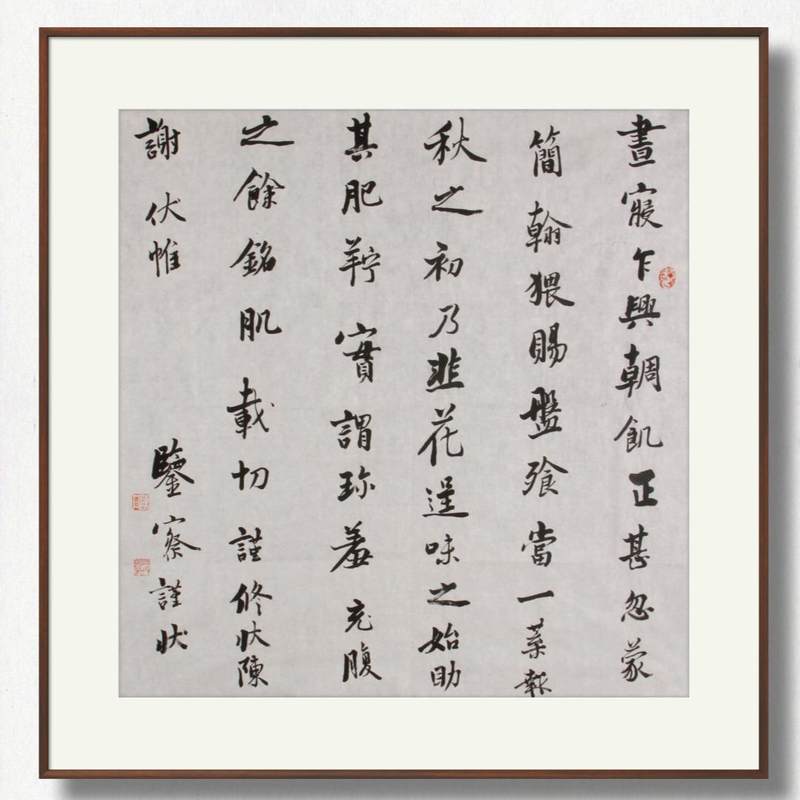 晝寢乍興輖飢正甚忽蒙
簡翰猥賜盤飱當一葉報
秋之初乃韭花逞味之始助
其肥羜實謂珍羞充腹
之餘銘肌載切謹修狀陳
謝伏惟鑒察謹狀